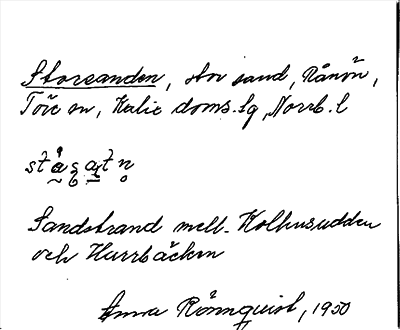 Storsanden, stor sand, Rånön,
Töre sn, Kalix doms.sg, Norrb. l
Sandstrand mell. Kolhusudden
och Harrbäcken
Anna Rönnquist, 1930